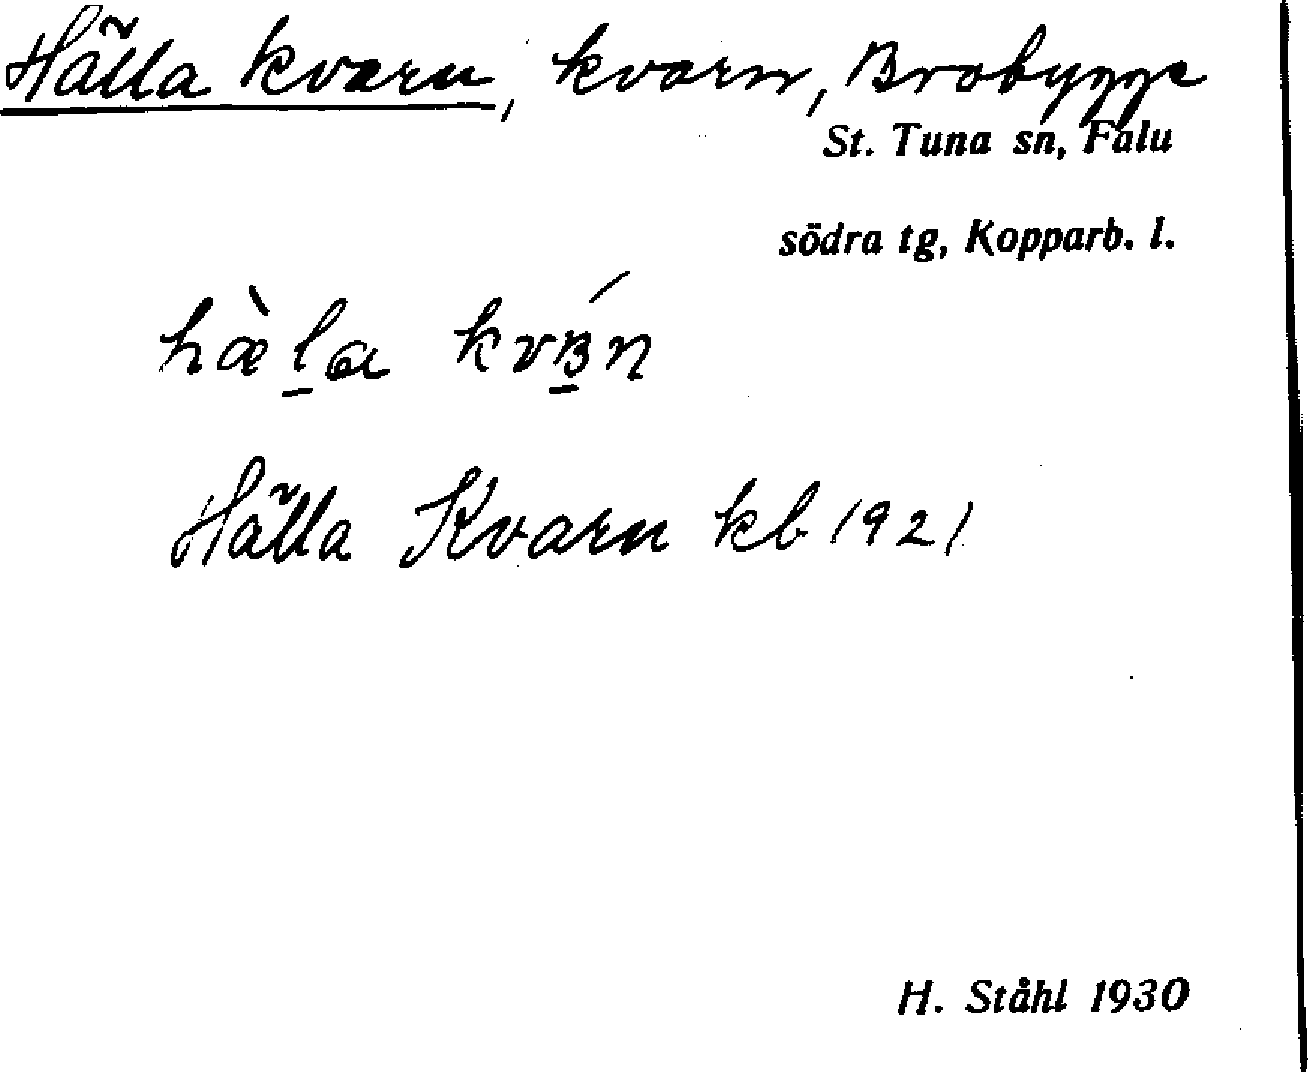 Hälla kvarn, kvarn, Brobygge
St. Tuna sn, Falu
södra tg, Kopparb. l.
Hälla Kvarn kb 1921
H. Ståhl 1930